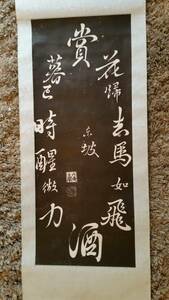 賞
花歸去馬如飛
酒
力微醒時已暮
东坡